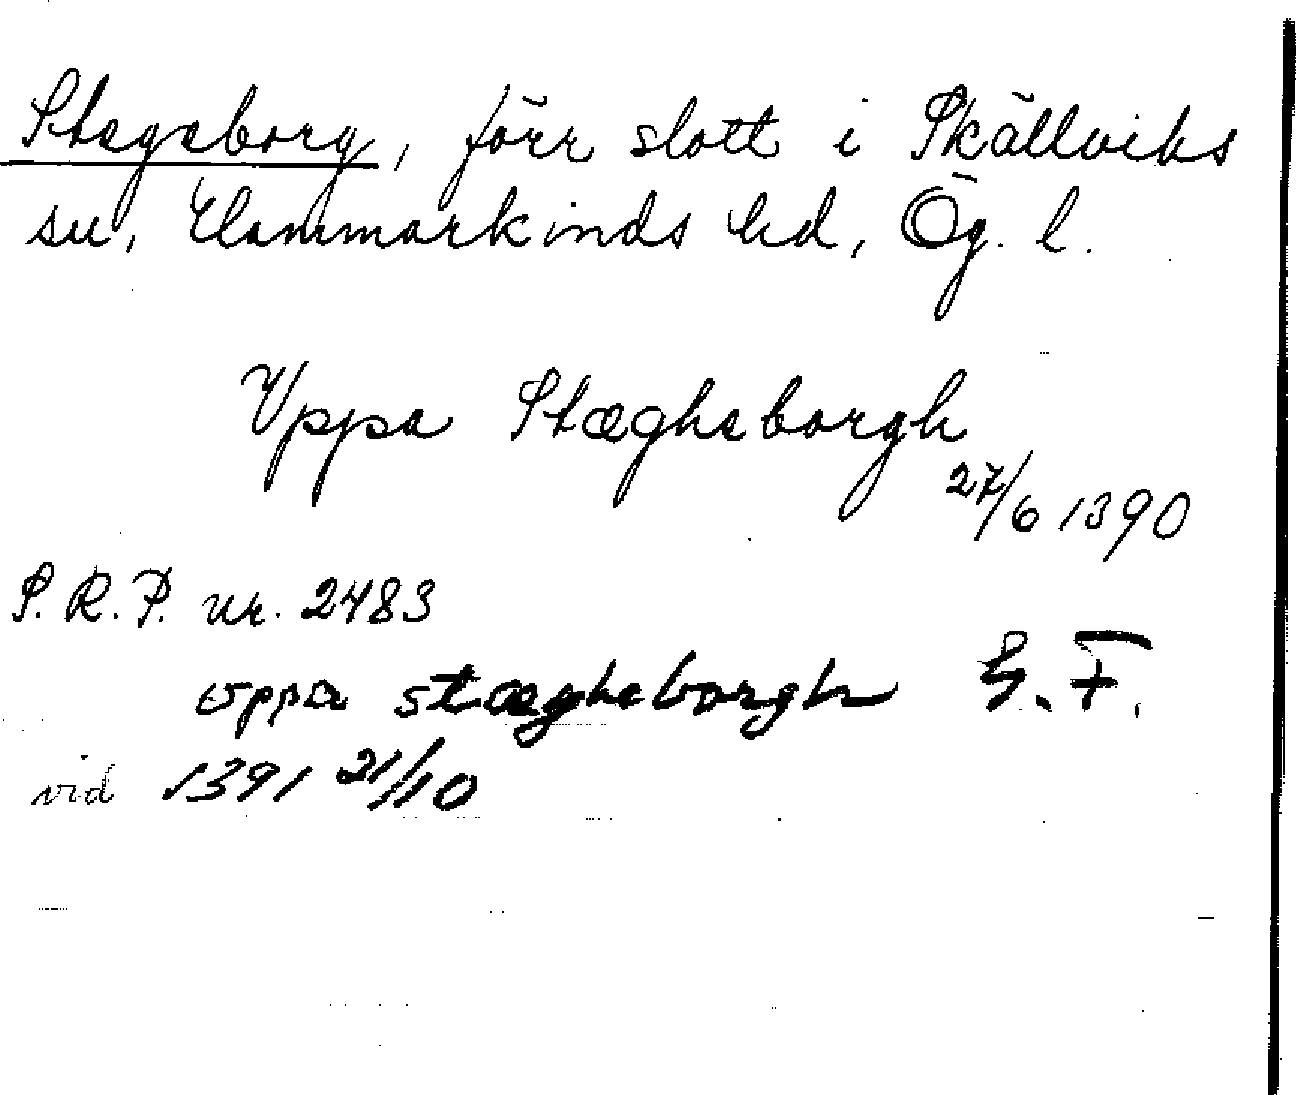 Stegeborg, förr slott i Skällviks
sn, Hammarkinds hd, Ög. l.
Uppa Stægheborgh
27/6 1390
S.R.P. nr. 2483
vppa stægheborgh G. F.
vid 1391 21/10